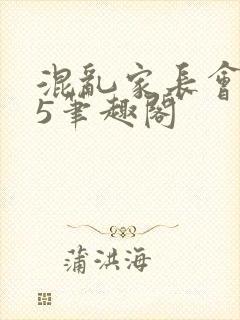 混亂家長會
5筆趣閣
蒲洪海